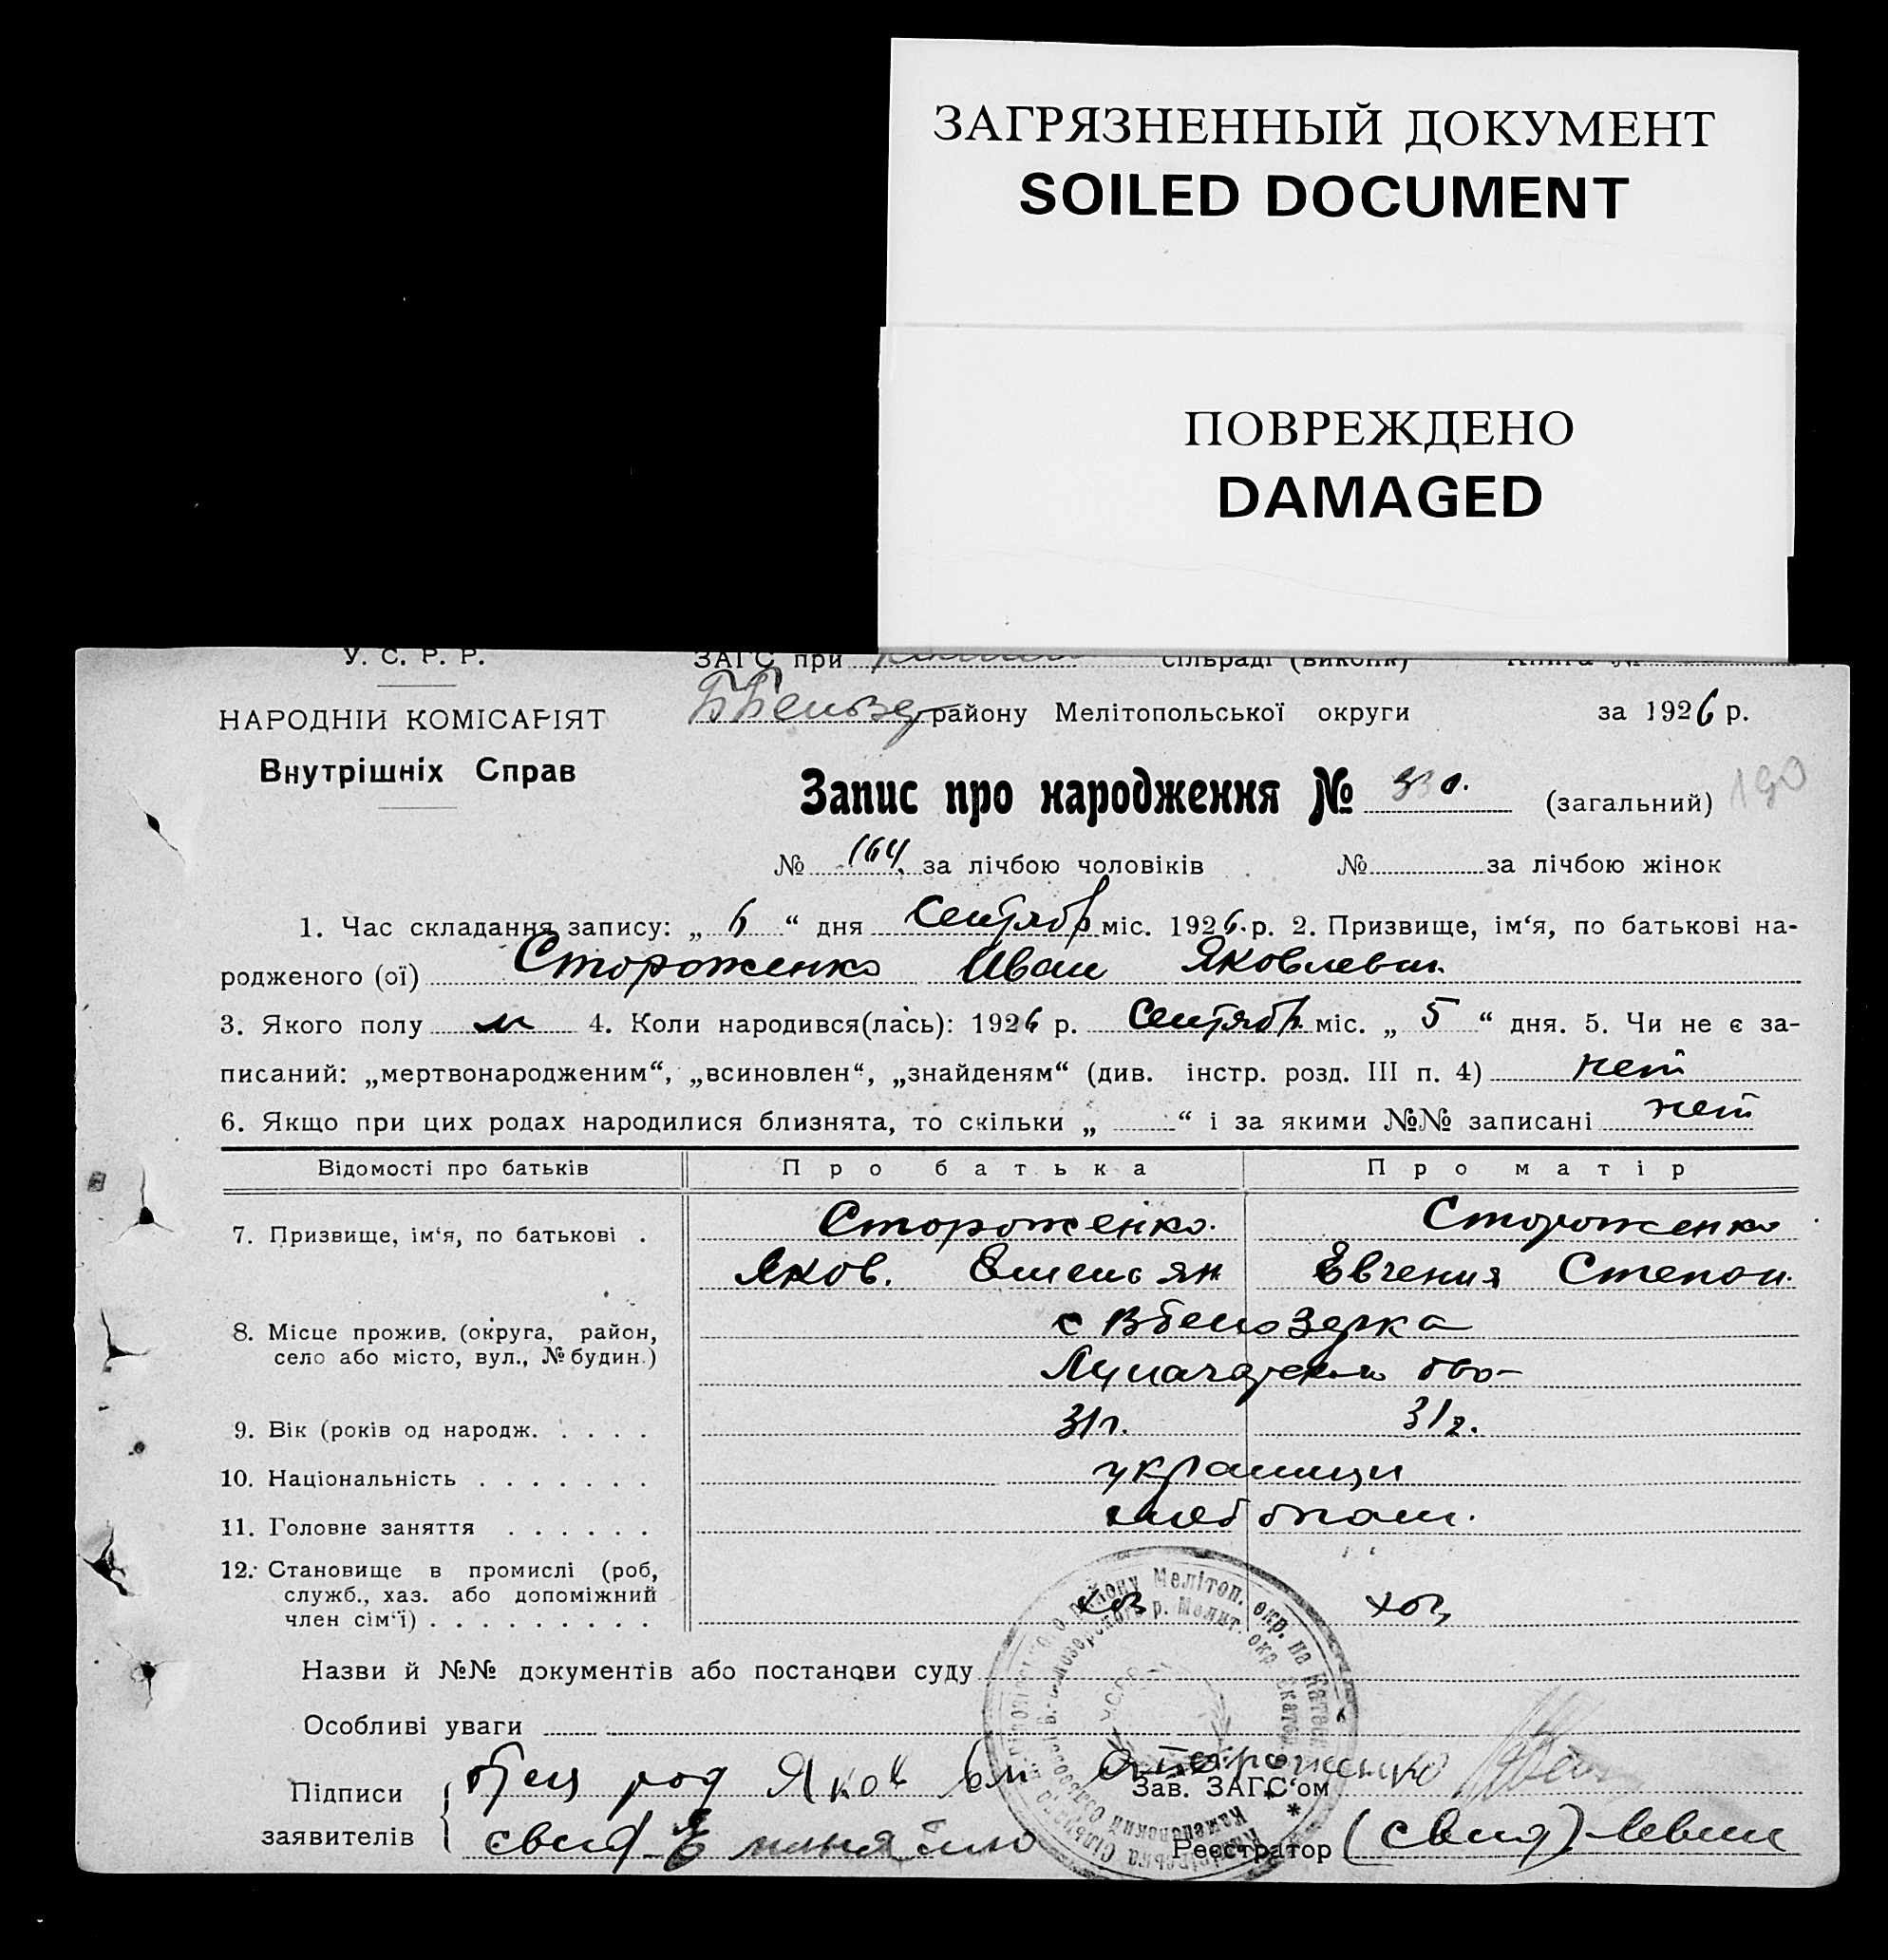 ЗАГРЯЗНЕННЫЙ ДОКУМЕНТ
SOILED DOCUMENT
ПОВРЕЖДЕНО
DAMAGED
У. С. Р. Р. ЗАГС при сільраді (виконк) Книга №
НАРОДНІЙ КОМІСАРІЯТ району Мелітопольської округи за 1926 р.
Внутрішніх Справ
Запис про народження № 330. (загальний) 190
№ 164 за лічбою чоловіків № за лічбою жінок
1. Час складання запису: „ 6 “ дня Сентябр міс. 1926 р. 2. Призвище, ім‘я, по батькові на-
родженого (ої) Стороженко Иван Яковлевич
3. Якого полу м 4. Коли народився(лась): 1926 р. Сентябр. міс. „ 5 “ дня. 5. Чи не є за-
писаний: „мертвонародженим“, „всиновлен“, „знайденям“ (див. інстр. розд. III п. 4) нет
6. Якщо при цих родах народилися близнята, то скільки „ “ і за якими №№ записані нет
Відомості про батьків Про батька Про матір
7. Призвище, ім‘я, по батькові . Стороженко. Стороженко
Яков. Емельян Евгения Степан.
8. Місце прожив. (округа, район, с Вбелозерка
село або місто, вул., № будин.)
9. Вік (років од народж. . . . . 31г. 31г.
10. Національність . . . . . . . украинци
11. Головне заняття . . . . . . хлебопаш.
12. Становище в промислі (роб,
служб., хаз. або допоміжний хоз хоз
член сім‘ї) . . . . . . . . .
Назви й №№ документів або постанови суду
Особливі уваги
Підписи отец род Яков Ем Стороженко Зав. ЗАГС‘ом
заявителів Реєстратор